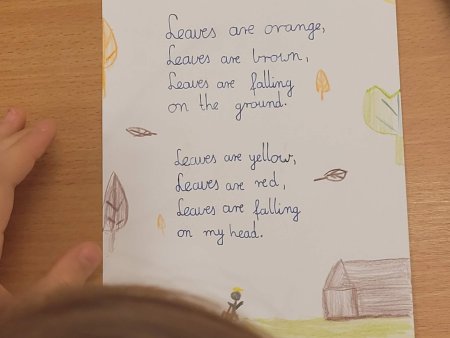 Leaves are orange,
Leaves are brown,
Leaves are falling
on the ground.
Leaves are yellow,
Leaves are red,
Leaves are falling
on my head.